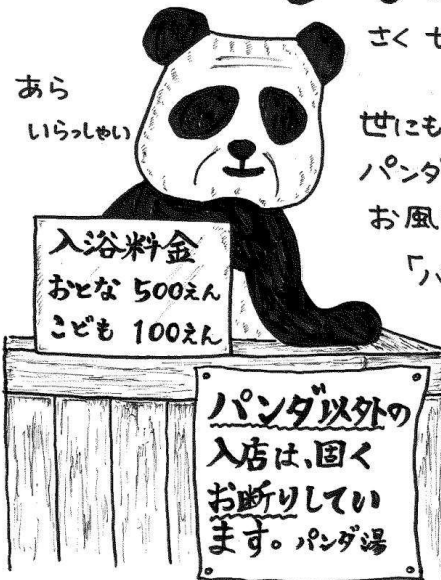 さく
あら
いらっしゃい
世にも
パンダ
お風
「パ
入浴料金
おとな 500えん
こども 100えん
パンダ以外の
入店は、固く
お断りしてい
ます。パンダ湯